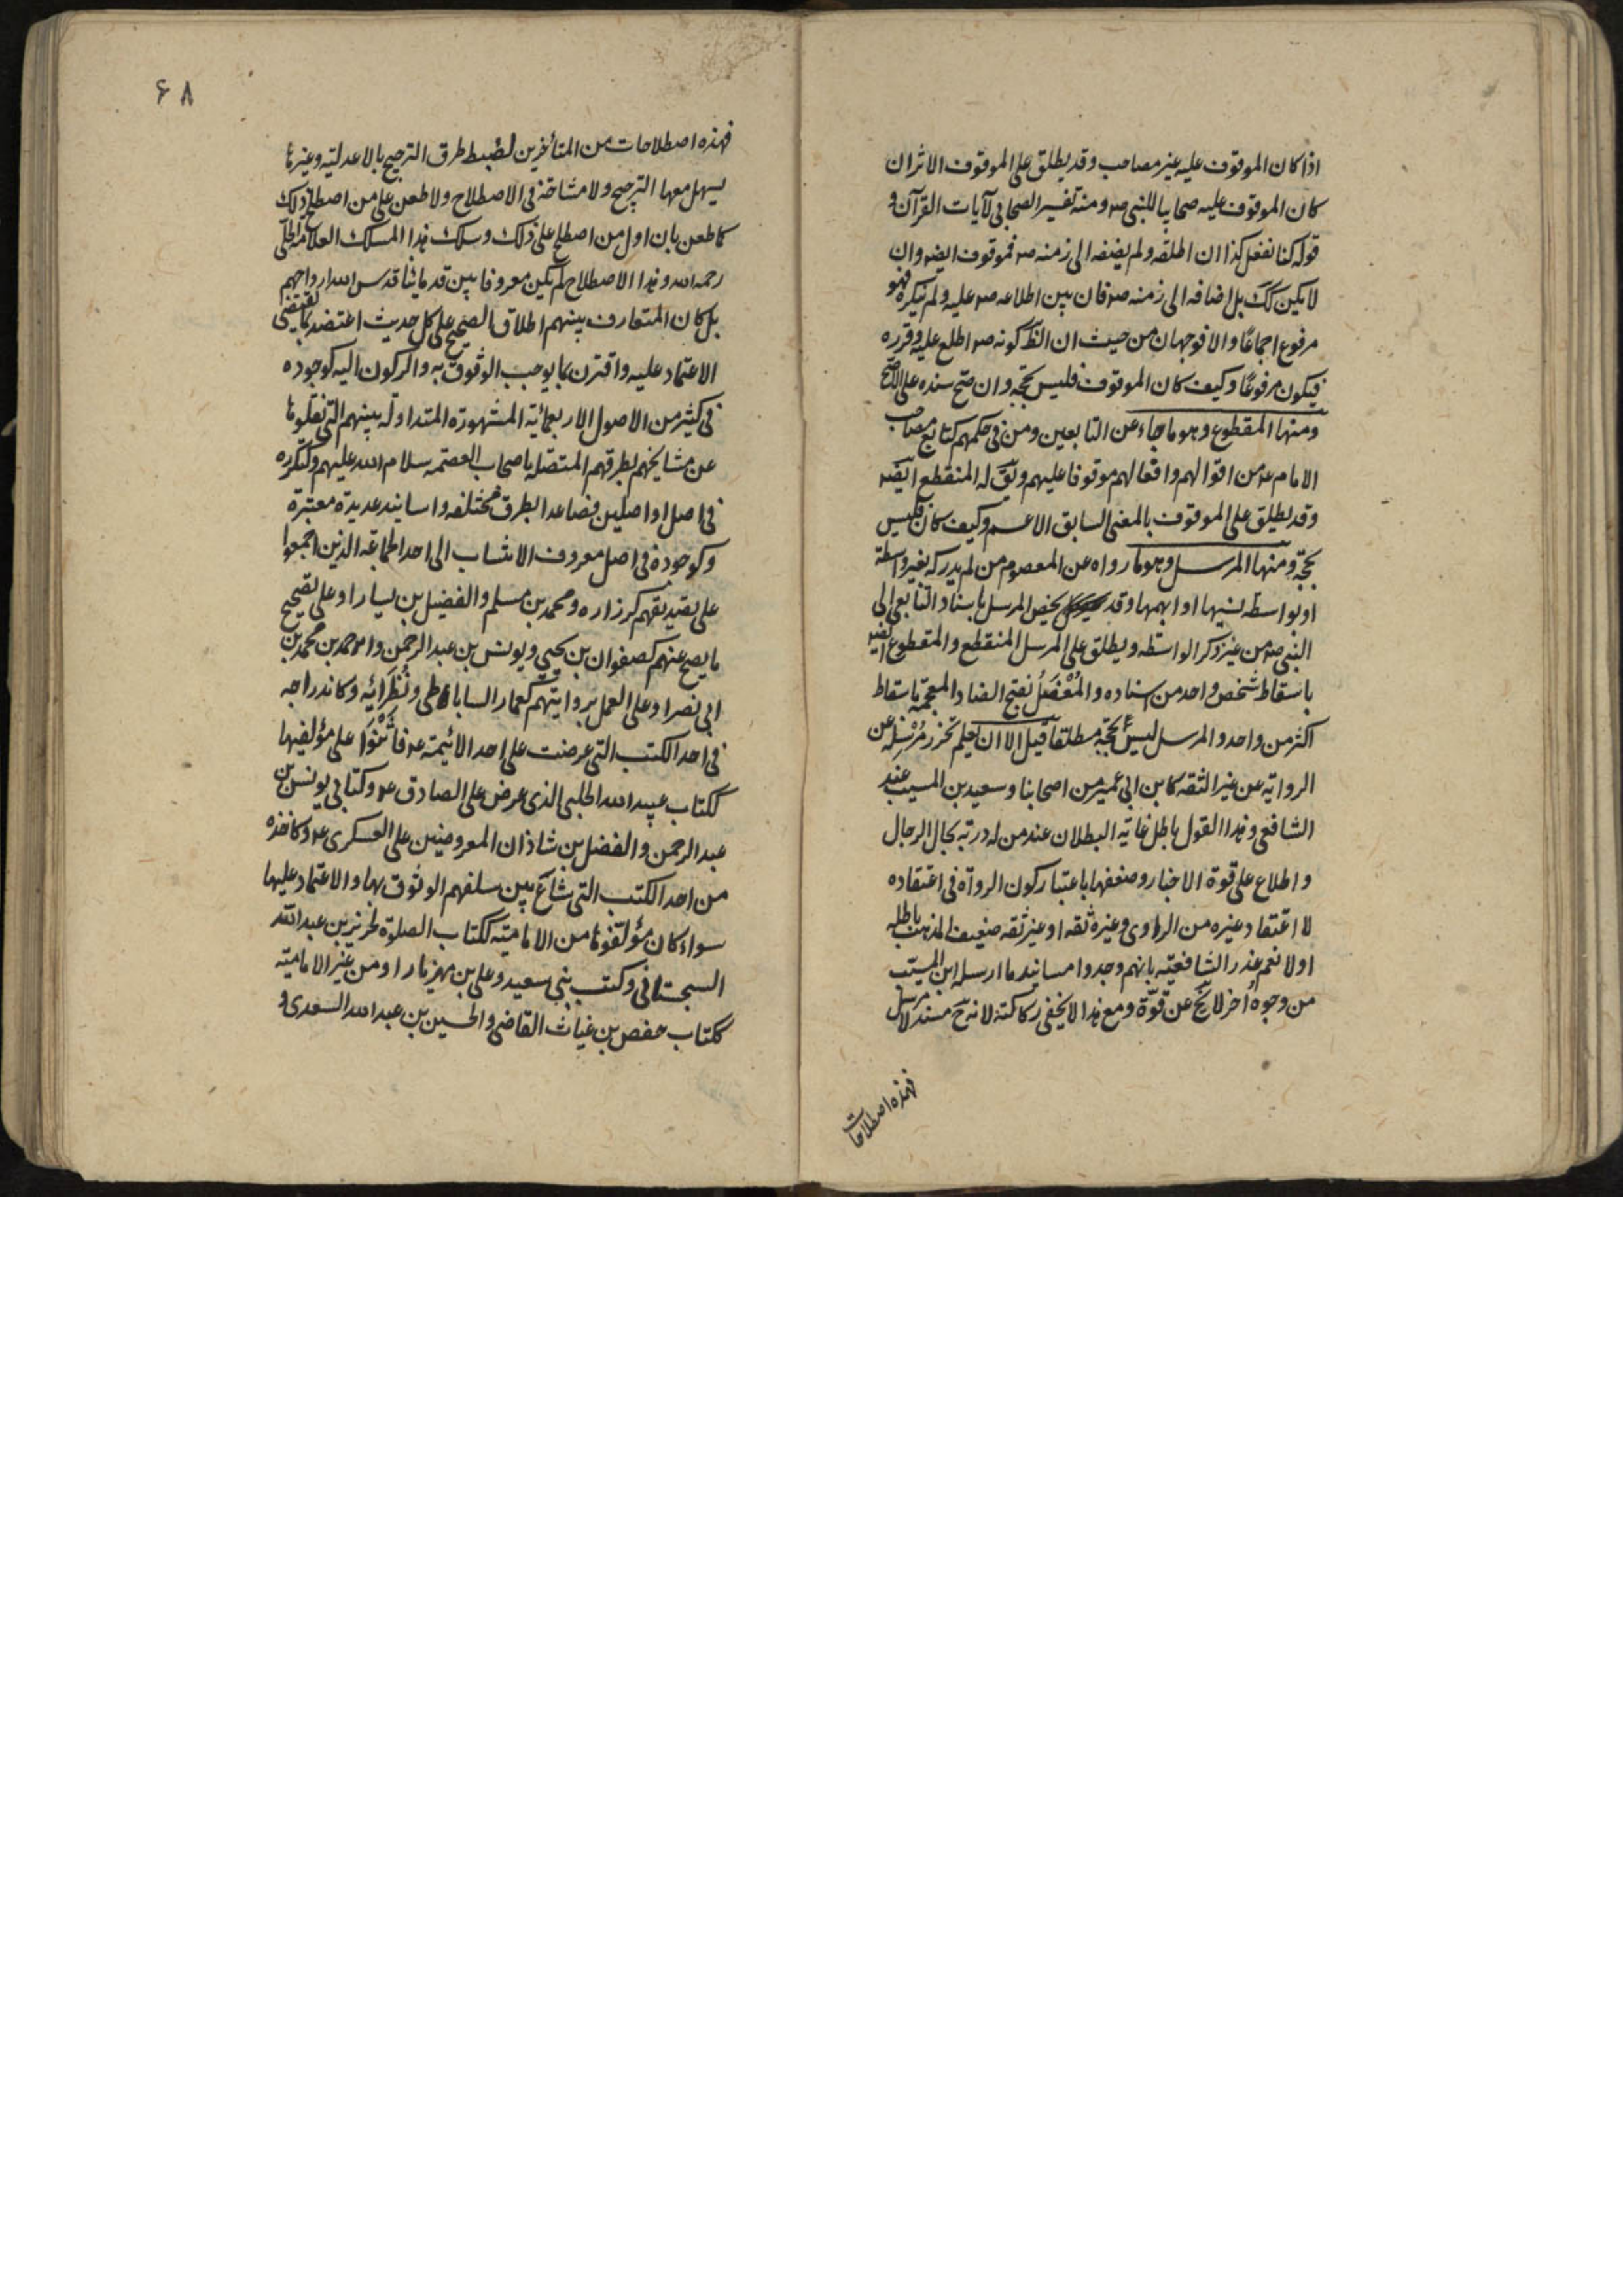 اذا كان الموقوف عليه غير مصاحب وقد يطلق على الموقوف الاثر ان
كان الموقوف عليه صحابيا للنبي صه ومنه تفسير الصحابي لآيات القرآن و
قوله كنا نفعل كذا ان اطلقه ولم يضفه الى زمنه صه فموقوف ايضه وان
لا يكن كك بل اضافه الى زمنه صه فان بين اطلاعه صه عليه ولم ينكره فهو
مرفوع اجماعًا والا فوجهان من حيث ان الظ كونه صه اطلع عليه وقرره
فيكون مرفوعًا وكيف كان الموقوف فليس بحجة وان صح سنده على الاصح
ومنها المقطوع وهو ما جاء عن التابعين ومن في حكمهم كتابع مصاحب
الامام عه من اقوالهم وافعالهم موقوفا عليهم ويق له المنقطع ايضه
وقد يطلق على الموقوف بالمعنى السابق الاعم وكيف كان فليس
بحجة ومنها المرسل وهو ما رواه عن المعصوم من لم يدركه بغير واسطة
او بواسطه نسيها او ابهمها وقد يخص المرسل باسناد التابعي الى
النبي صه من غير ذكر الواسطه ويطلق على المرسل المنقطع والمقطوع ايضه
باسقاط شخص واحد من اسناده والمُعْضَلُ بفتح الضاد المعجمة باسقاط
اكثر من واحد والمرسل ليس بحجة مطلقا قيل الا ان يعلم تحرز مُرْسِله عن
الرواية عن غير الثقه كابن ابي عمير من اصحابنا وسعيد بن المسيب عند
الشافعي وهذا القول باطل غاية البطلان عند من له دربة بحال الرجال
واطلاع على قوة الاخبار وضعفها باعتبار كون الرواة في اعتقاده
لا اعتقاد غيره من الراوي وغيره ثقه او غير ثقه ضعيف المذهب باطله
او لا نعم عذر الشافعية بانهم وجدوا مسانيد ما ارسله ابن المسيب
من وجوه اُخر لا يخ عن قوّة ومع هذا لا يخفى ركاكته لانه ح مسند لا مرسل
فهذه اصطلاحات
٦٨
فهذه اصطلاحات من المتأخرين لضبط طرق الترجيح بالاعدلية وغيرها
يسهل معها الترجيح ولا مشاحة في الاصطلاح ولا طعن على من اصطلح ذلك
كما طعن بان اول من اصطلح على ذلك وسلك هذا المسلك العلامة الحلي
رحمه الله وهذا الاصطلاح لم يكن معروفا بين قدمائنا قدس الله ارواحهم
بل كان المتعارف بينهم اطلاق الصحيح على كل حديث اعتضد بما يقتضي
الاعتماد عليه واقترن بما يوجب الوثوق به والركون اليه كوجوده
في كثير من الاصول الاربعمائة المشهورة المتداولة بينهم التي نقلوها
عن مشايخهم بطرقهم المتصله باصحاب العصمه سلام الله عليهم وكتكرره
في اصل او اصلين فصاعدا بطرق مختلفه واسانيد عديدة معتبرة
وكوجوده في اصل معروف الانتساب الى احد الجماعة الذين اجمعوا
على تصديقهم كزراره ومحمد بن مسلم والفضيل بن يسار او على تصحيح
ما يصح عنهم كصفوان بن يحيى ويونس بن عبد الرحمن واحمد بن محمد بن
ابي نصر او على العمل بروايتهم كعمار الساباطي ونُظَرائِه وكاندراجه
في احد الكتب التي عرضت على احد الائمة عه فاَثْنَوْا على مؤلفيها
ككتاب عبيد الله الحلبي الذي عرض على الصادق عه وكتابي يونس بن
عبد الرحمن والفضل بن شاذان المعروضين على العسكري عه وكاخذه
من احد الكتب التي شاع بين سلفهم الوثوق بها والاعتماد عليها
سواء كان مؤلفوها من الامامية ككتاب الصلوة لحريز بن عبد الله
السجستاني وكتب بني سعيد وعلي بن مهزيار او من غير الامامية
ككتاب حفص بن غياث القاضي والحسين بن عبد الله السعدي و